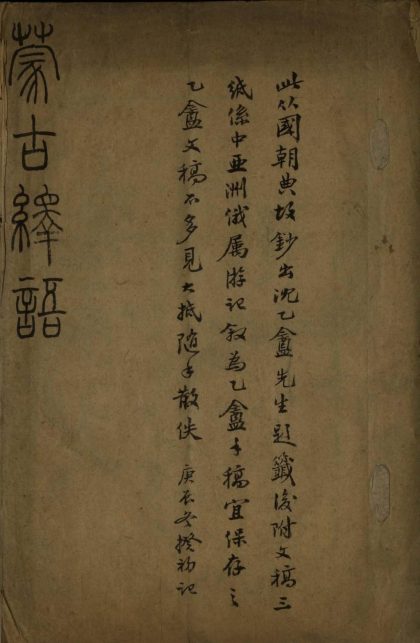 蒙古繹語
此從國朝典故鈔出沈乙盦先生題籤後附文稿三
紙係中亞洲俄属游记敘為乙盦手稿宜保存之
乙盦文稿不多見大抵随手散佚
庚辰冬揆初记